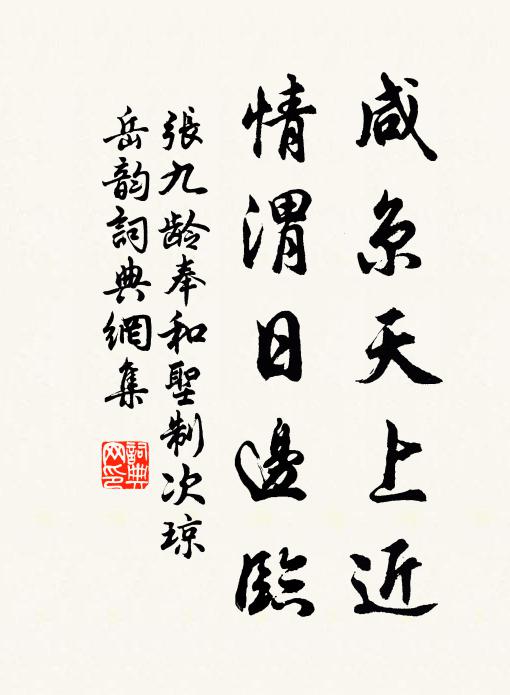 咸京天上近
情渭日邊臨
張九龄奉和聖制次琼
岳韵詞典網集
詞典
网印